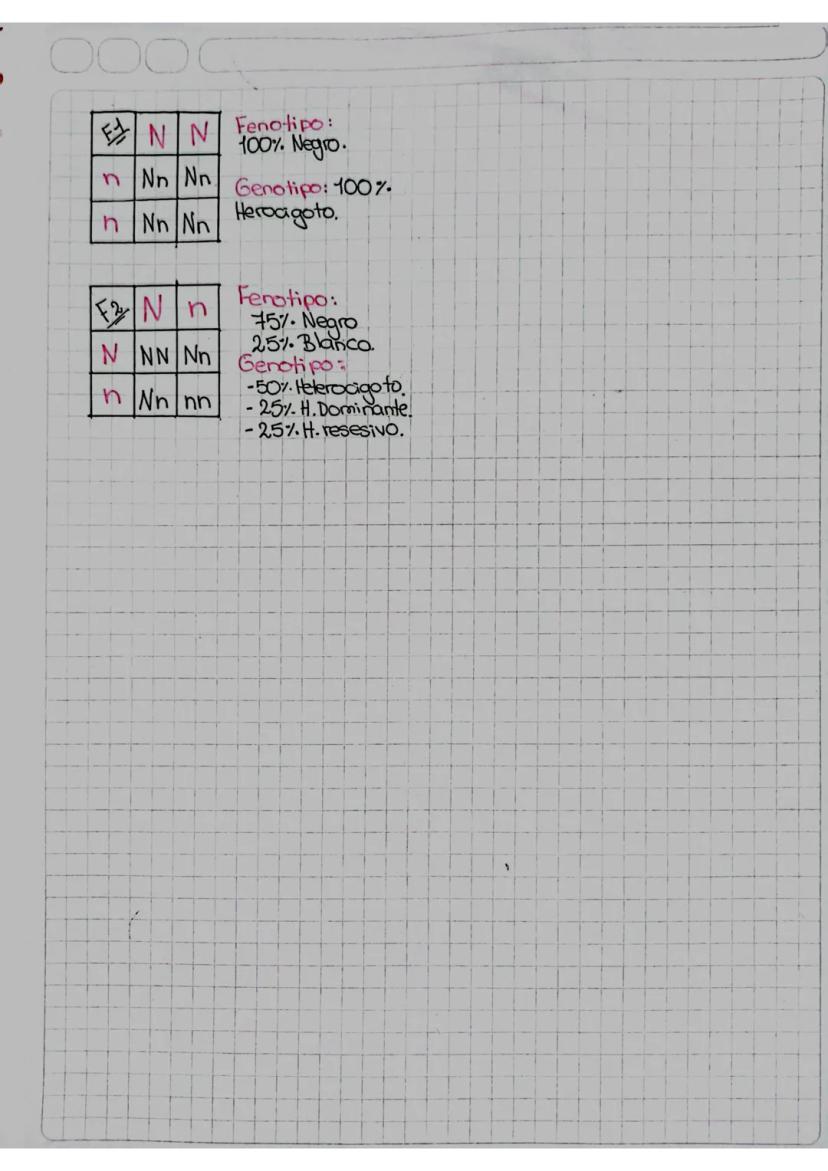 F1 N N
n Nn Nn
n Nn Nn
Fenotipo:
100% Negro.
Genotipo: 100%
Herocigoto.
F2 N n
N NN Nn
n Nn nn
Fenotipo:
75% Negro
25% Blanco.
Genotipo:
-50% Heterocigoto.
- 25% H. Dominante.
- 25% H. resesivo.